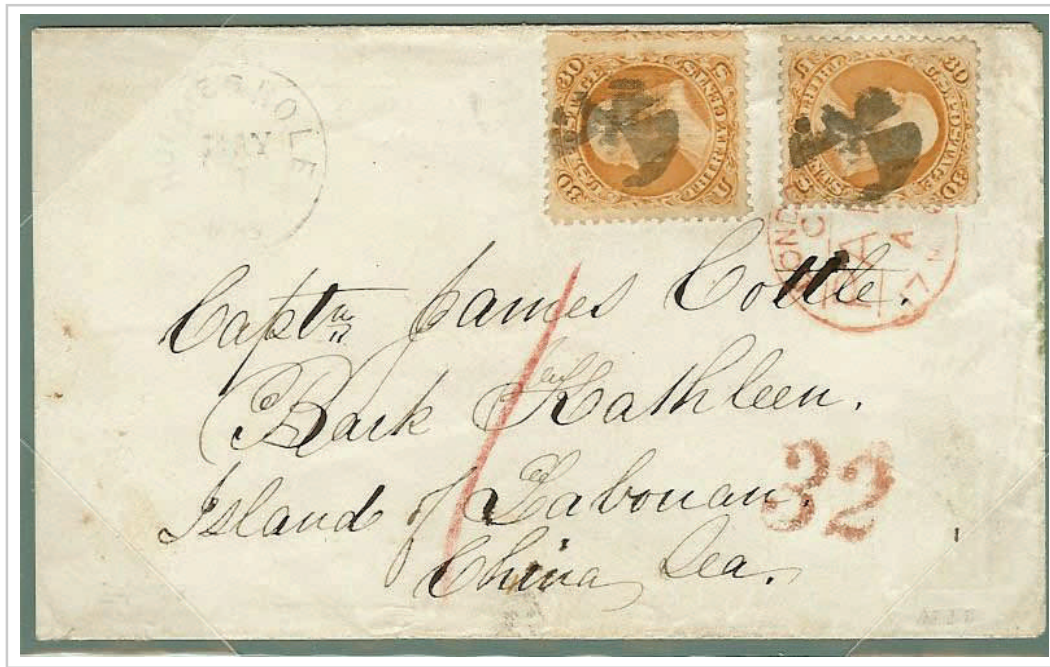 30
U.S. POSTAGE
30
30
U.S. POSTAGE
30
HOLE
MAY
LOND
PAID
Captn James Cottle.
Bark Kathleen.
Island of Labouan.
China Sea.
32